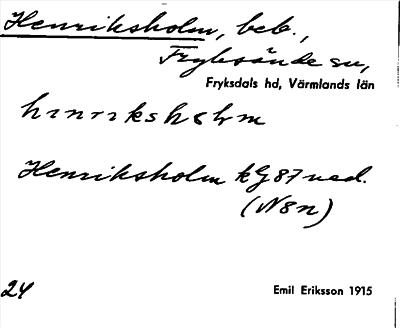 Henriksholm, beb.,
Fryksände sn,
Fryksdals hd, Värmlands län
hɛnrıkshɔlm
Henriksholm kG87 ned.
(N8n)
24
Emil Eriksson 1915